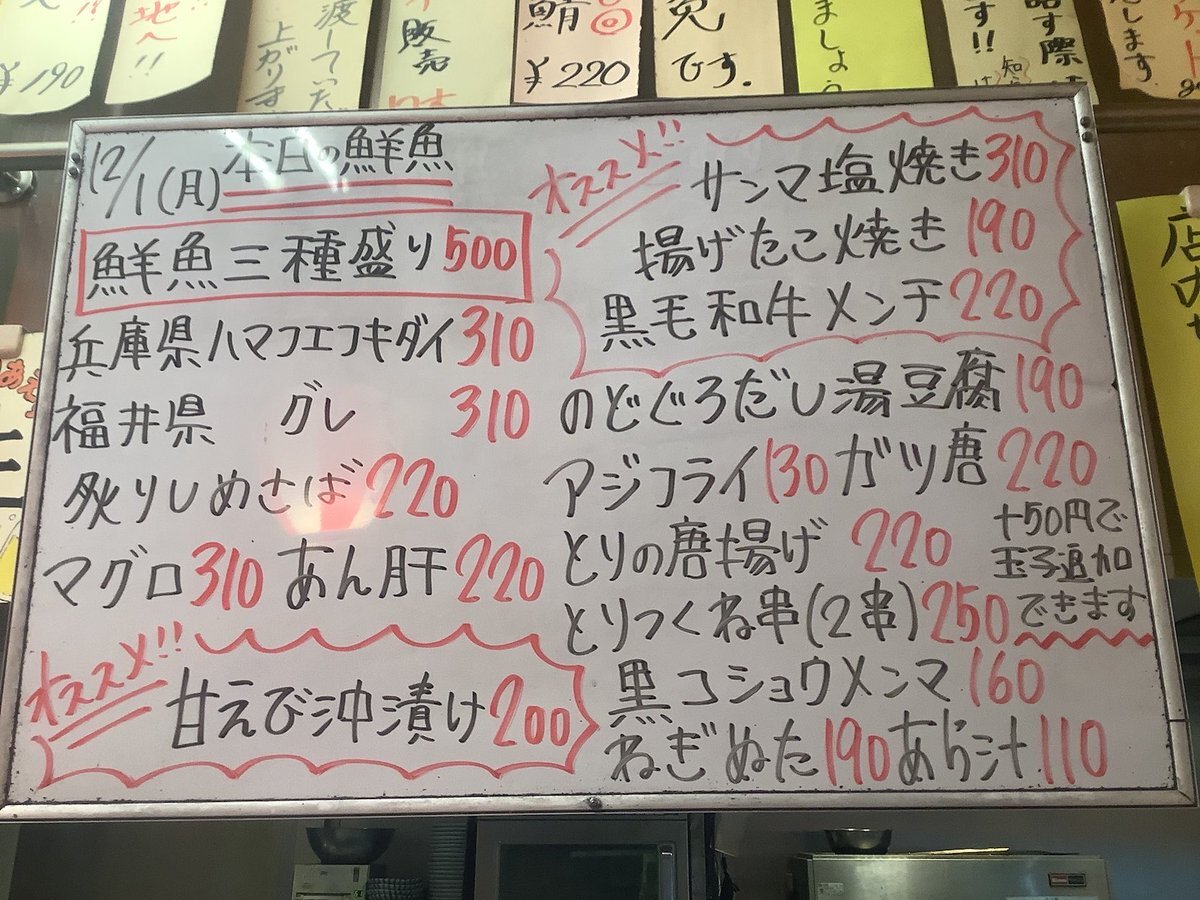 ¥190
地へ!!
渡していた
上がりす
販売
鯖
¥220
です。
ましょう
す!!
話す際
します
12/1(月)本日の鮮魚
鮮魚三種盛り500
兵庫県ハマフエフキダイ310
福井県 グレ 310
炙りしめさば220
マグロ310 あん肝220
オススメ!!
甘えび沖漬け200
オススメ!!
サンマ塩焼き310
揚げたこ焼き190
黒毛和牛メンチ220
のどぐろだし湯豆腐190
アジフライ130 ガツ唐220
とりの唐揚げ 220
とりつくね串(2串)250
+50円で
玉子追加
できます
黒コショウメンマ160
ねぎぬた190 あら汁110
店内